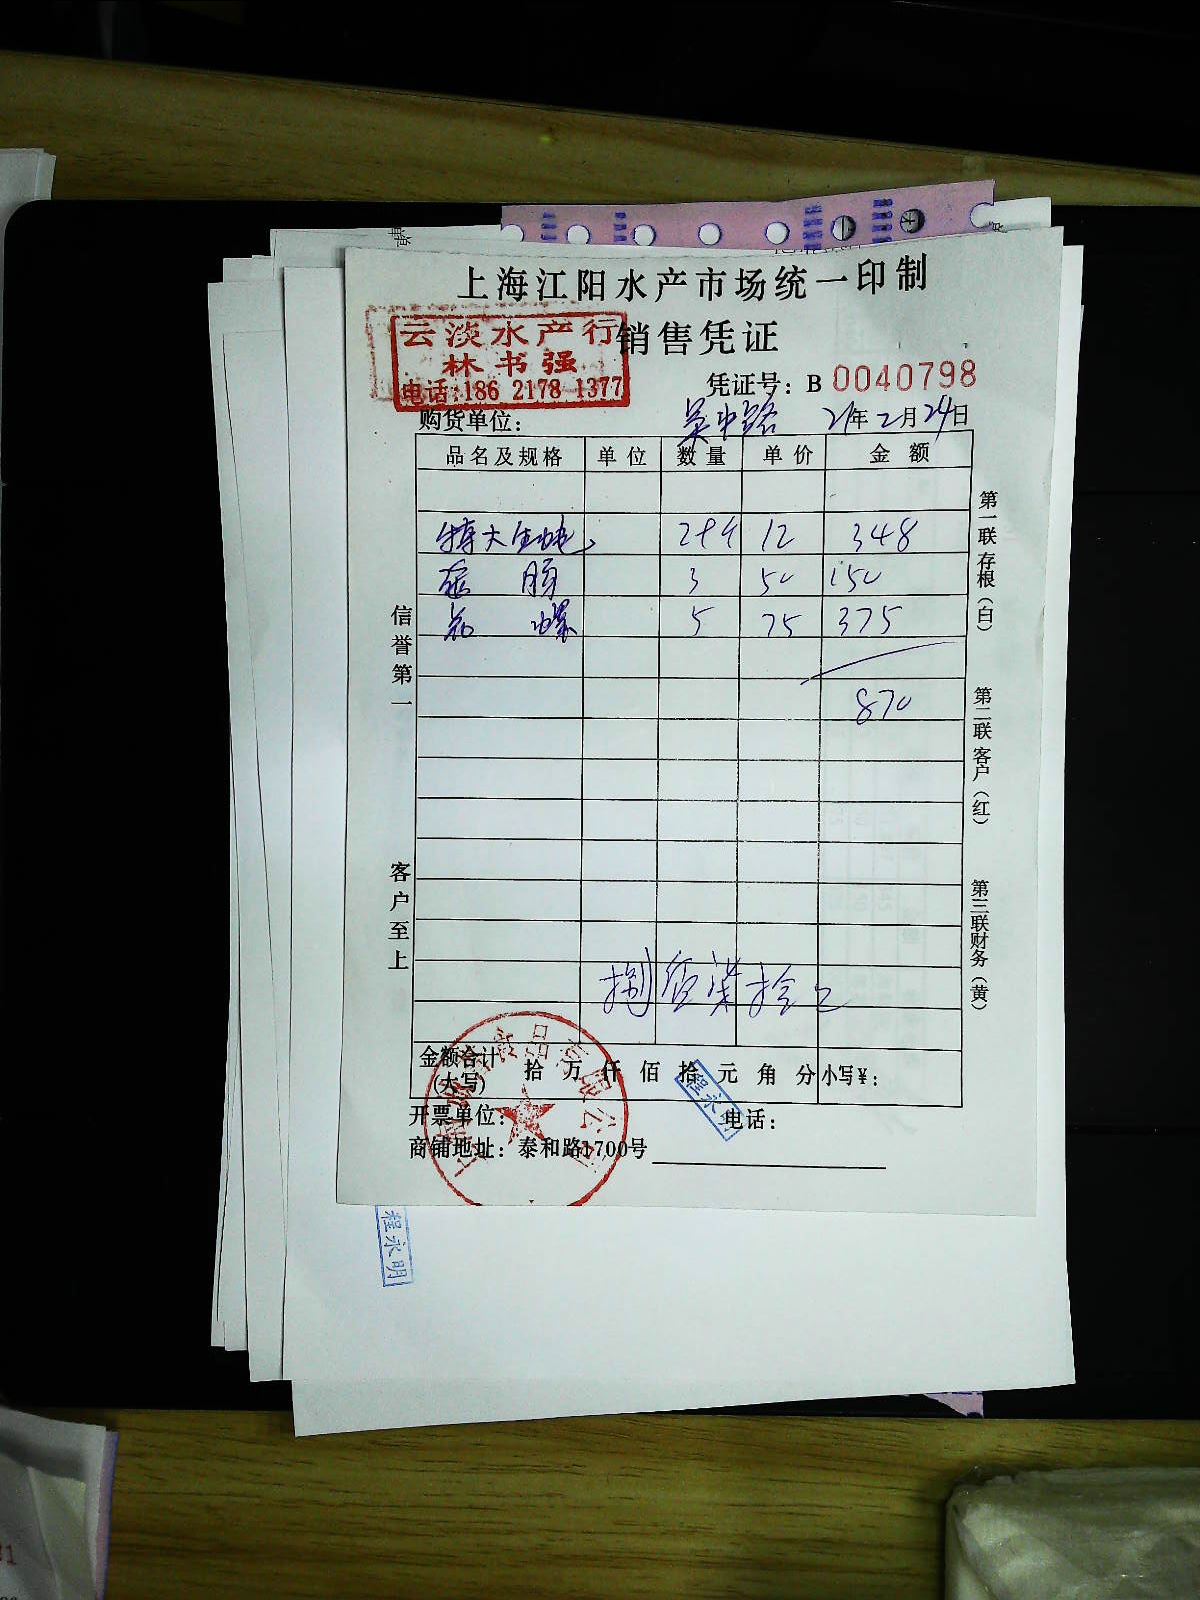 上海江阳水产市场统一印制
云淡水产行
林书强
电话:186 2178 1377
销售凭证
凭证号：B 0040798
购货单位： 吴中路 21年2月24日
品名及规格 单位 数量 单价 金额
特大生蚝 29个 12 348
肠 3 50 150
螺 5 75 375
870
捌佰柒拾
金额合计(大写) 拾 万 仟 佰 拾 元 角 分 小写￥：
开票单位： 电话：
商铺地址：泰和路1700号
信誉第一
客户至上
第一联存根（白）
第二联客户（红）
第三联财务（黄）
程永明
程永明